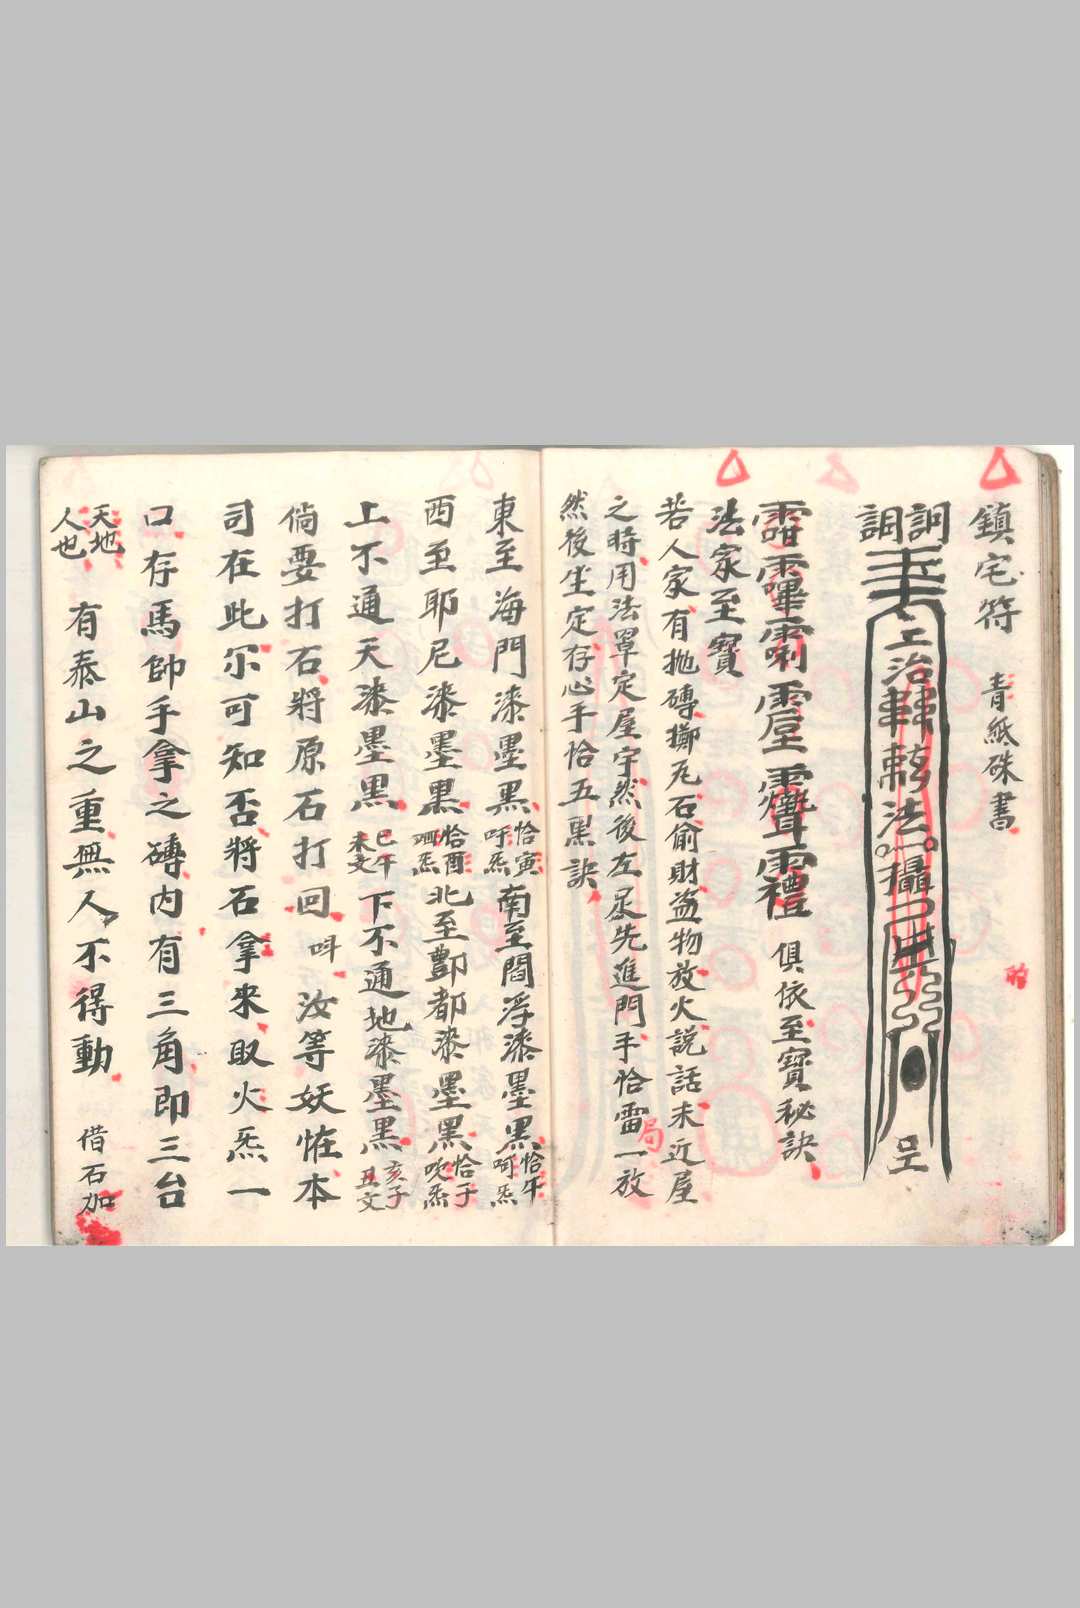 鎮宅符 青紙硃書
上治 法 攝
法家至寶
俱依至寶秘訣
若人家有拋磚擲瓦石偷財盜物放火說話未近屋
之時用法罩定屋宇然後左足先進門手恰雷局一放
然後坐定存心手恰五黑訣
東至海門漆墨黑 恰寅 呼炁 南至閻浮漆墨黑 恰午 呵炁
西至耶尼漆墨黑 恰酉 炁 北至酆都漆墨黑 恰子 吹炁
上不通天漆墨黑 巳午 未文 下不通地漆墨黑 亥子 丑文
倘要打石將原石打回 叫 汝等妖怪本
司在此尔可知否將石拿來取火炁一
口存馬帥手拿之磚內有三角即三台
天地人也 有泰山之重無人不得動 借石加